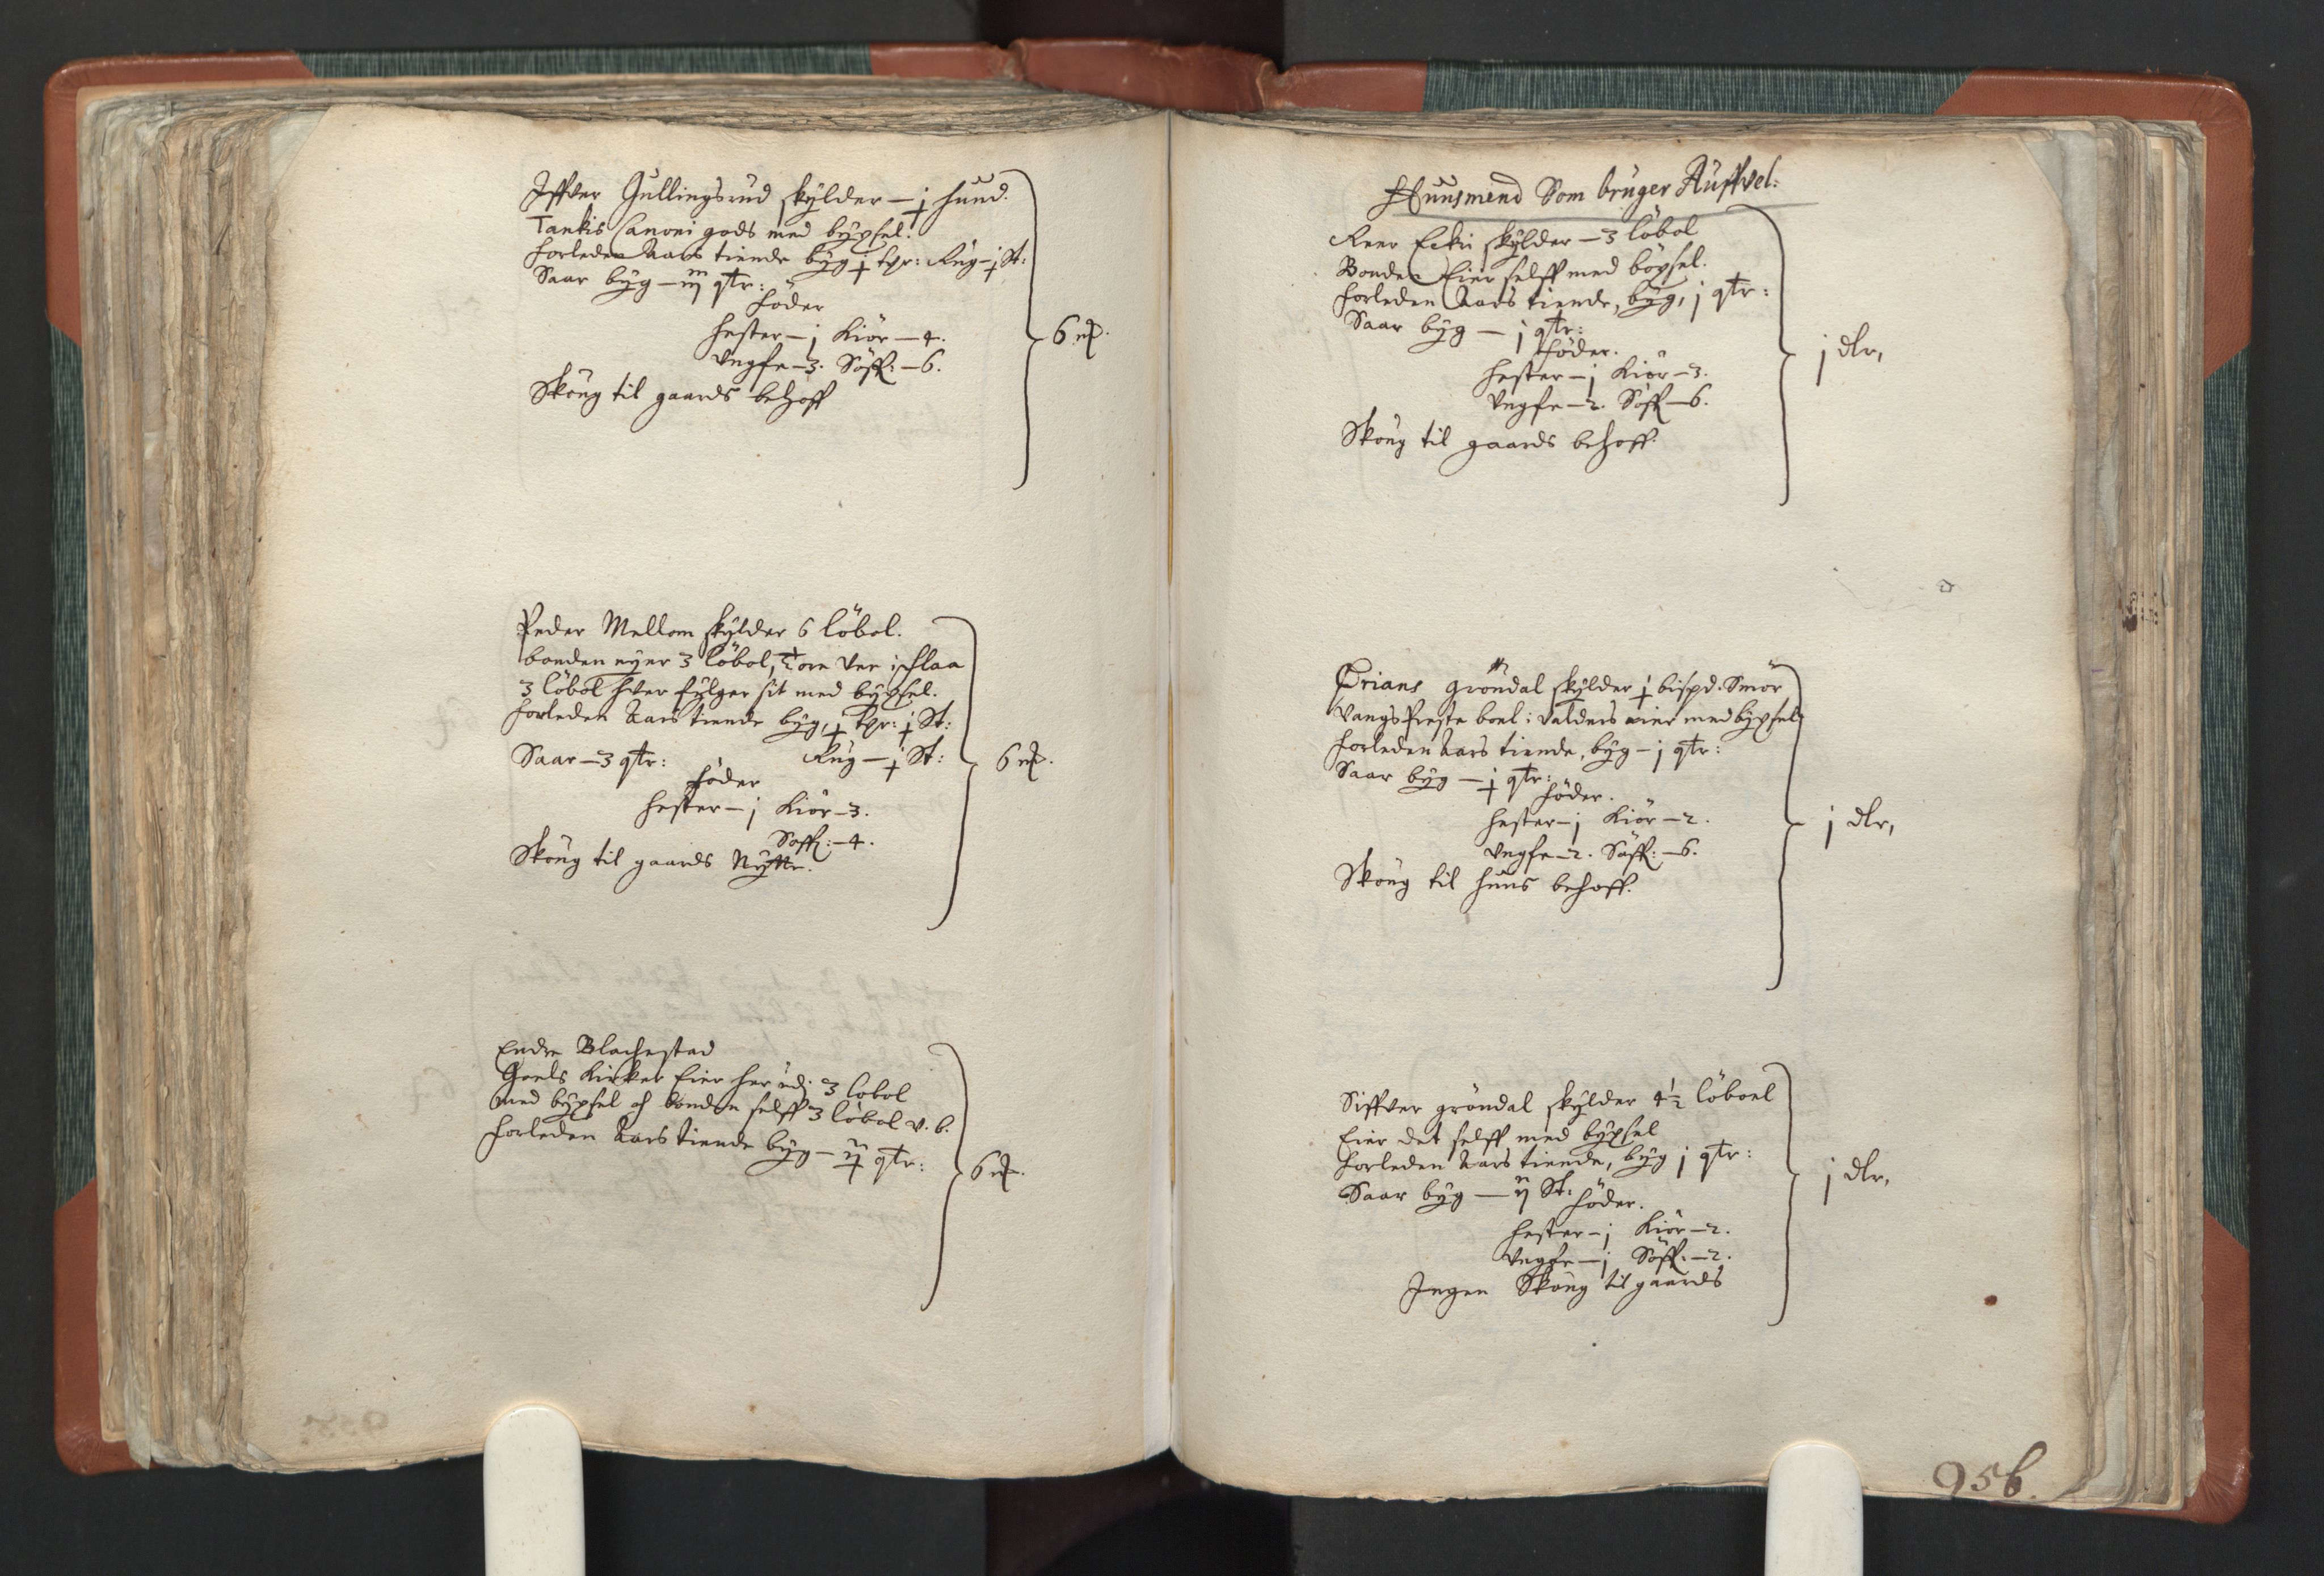 Iffver Gullingsrud skylder – j hund.
Tankis Canoni gods med bygsel.
Forleden Aars tiende byg j tgr: Rug – j St:
Saar byg – iij qtr:
föder
hester – j Kiör – 4.
Ungfe – 3. Söff: – 6.
Skoug til gaards behoff
6 ꝶ.
Peder Mellom skylder 6 löbol.
bonden eyer 3 löbol, Tore Ver i Flaa
3 löbol hver fylger sit med bygsel.
Forleden Aars tiende byg, j tgr: j St:
Saar – 3 qtr: Rug – j St:
föder
hester – j Kiör – 3.
Söff: – 4.
Skoug til gaards Nytte.
6 ꝶ.
Endre Blachestad
Goels Kirker Eier her udi 3 löbol
med bygsel och bonden selff 3 löbol v. b.
Forleden Aars tiende byg – ij qtr:
6 ꝶ.
Huusmend Som bruger Auffvel:
Reer Ecki skylder – 3 löbol
Bonden Eier selff med böysel.
Forleden Aars tiende, byg, j qtr:
Saar byg – j qtr:
föder.
hester – j Kiör – 3.
Ungfe – 2. Söff – 6.
Skoug til gaards behoff.
j dlr,
Örians gröndal skylder j bispd. Smör
Vangs Preste boel i Valders eier med bygsel
Forleden Aars tiende, byg – j qtr:
Saar byg – j qtr:
föder.
hester – j Kiör – 2.
Ungfe – 2. Söff: – 6.
Skoug til huus behoff.
j dlr,
Siffver gröndal skylder 4½ löboel
Eier det selff med bygsel
Forleden Aars tiende, byg j qtr:
Saar byg – ij St:
föder.
hester – j Kiör – 2.
Ungfe – j Söff: – 2.
Ingen Skoug til gaards
j dlr,
956.